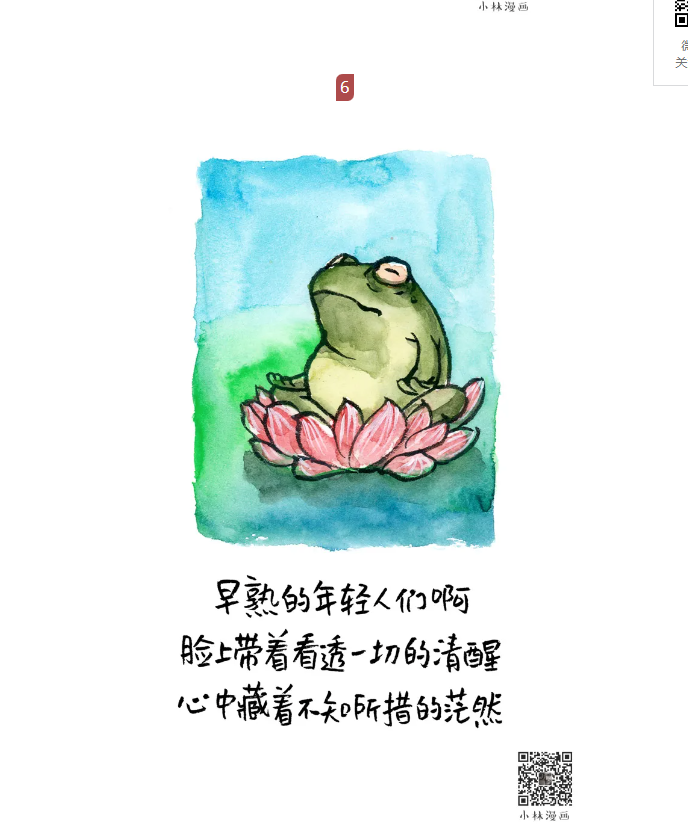 小林漫画
6
关
早熟的年轻人们啊
脸上带着看透一切的清醒
心中藏着不知所措的茫然
小林漫画